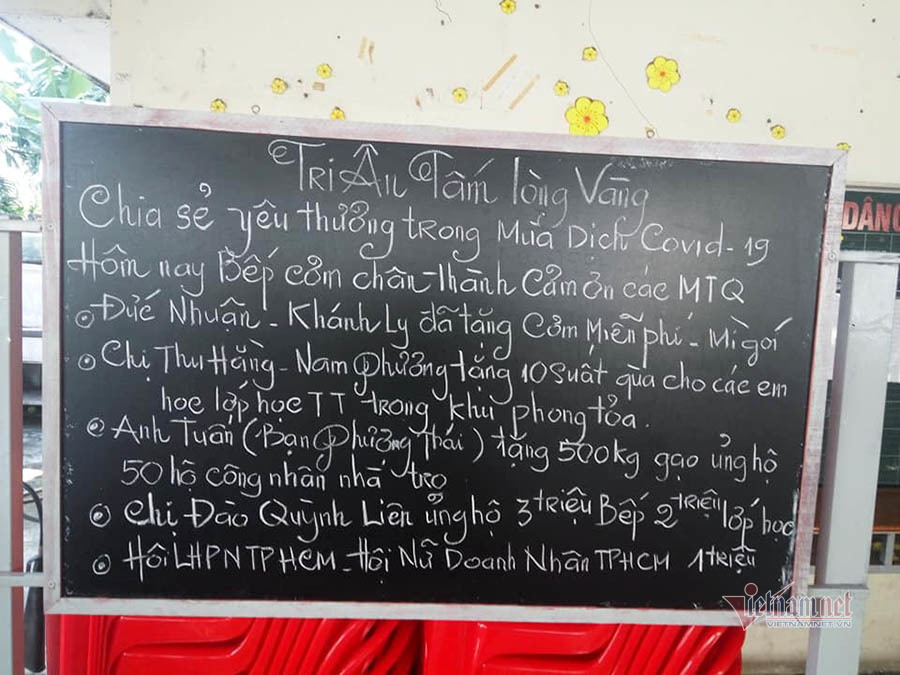 Tri Ân Tấm lòng Vàng
Chia sẻ yêu thưởng trong Mùa Dịch Covid-19
Hôm nay Bếp cơm chân-thành Cảm ơn các MTQ
Đức Nhuận - Khánh Ly đã tặng Cơm Miễn phí - Mì gói
Chị Thu Hằng - Nam Phương tặng 10 Suất quà cho các em
học lớp học TT trong khu phong tỏa.
Anh Tuấn (Bạn Phương Thái) tặng 500kg gạo ủng hộ
50 hộ công nhân nhà trọ
Chị Đào Quỳnh Liên ủng hộ 3 triệu Bếp 2 triệu lớp học
Hội LHPN TPHCM - Hội Nữ Doanh Nhân TPHCM 1 triệu
DÂNG
Vietnamnet
VIETNAMNET.VN